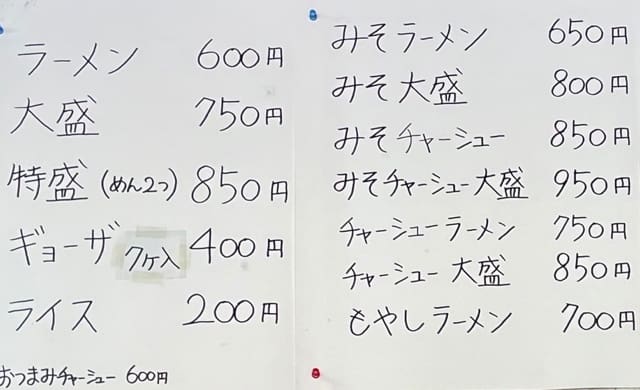 ラーメン 600円
大盛 750円
特盛(めん2つ) 850円
ギョーザ 7ケ入 400円
ライス 200円
おつまみチャーシュー 600円
みそラーメン 650円
みそ大盛 800円
みそチャーシュー 850円
みそチャーシュー大盛 950円
チャーシューラーメン 750円
チャーシュー大盛 850円
もやしラーメン 700円